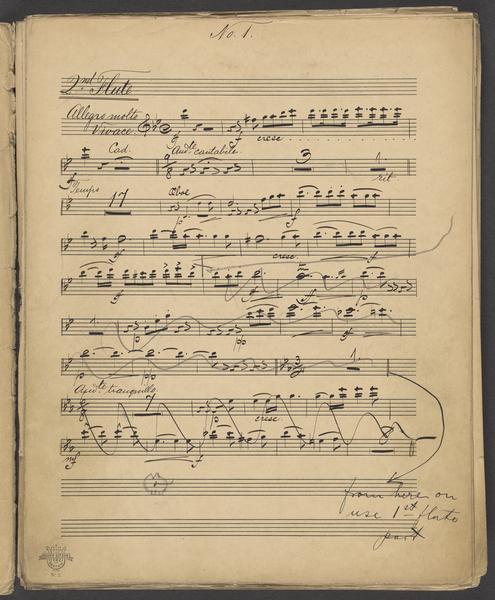 No. 1.
2nd Flute
Allegro molto
Vivace.
f f cresc
Cad. Andte cantabile.
3 1.
f rit
Tempo
17 Oboe
p sf
sf cresc. sf
sf sf sf p
1 p pp sf
p pp 3 1.
Andte tranquillo.
7 cresc
mf f
from here on
use 1st flute
part